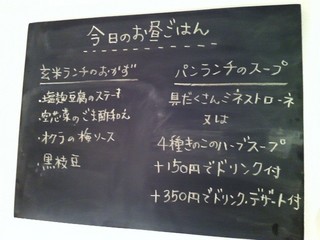 今日のお昼ごはん
玄米ランチのおかず
・塩麹豆腐のステーキ
・空芯菜のごま酢和え
・オクラの梅ソース
・黒枝豆
パンランチのスープ
具だくさんミネストローネ
又は
4種きのこハーブスープ
+150円でドリンク付
+350円でドリンク,デザート付